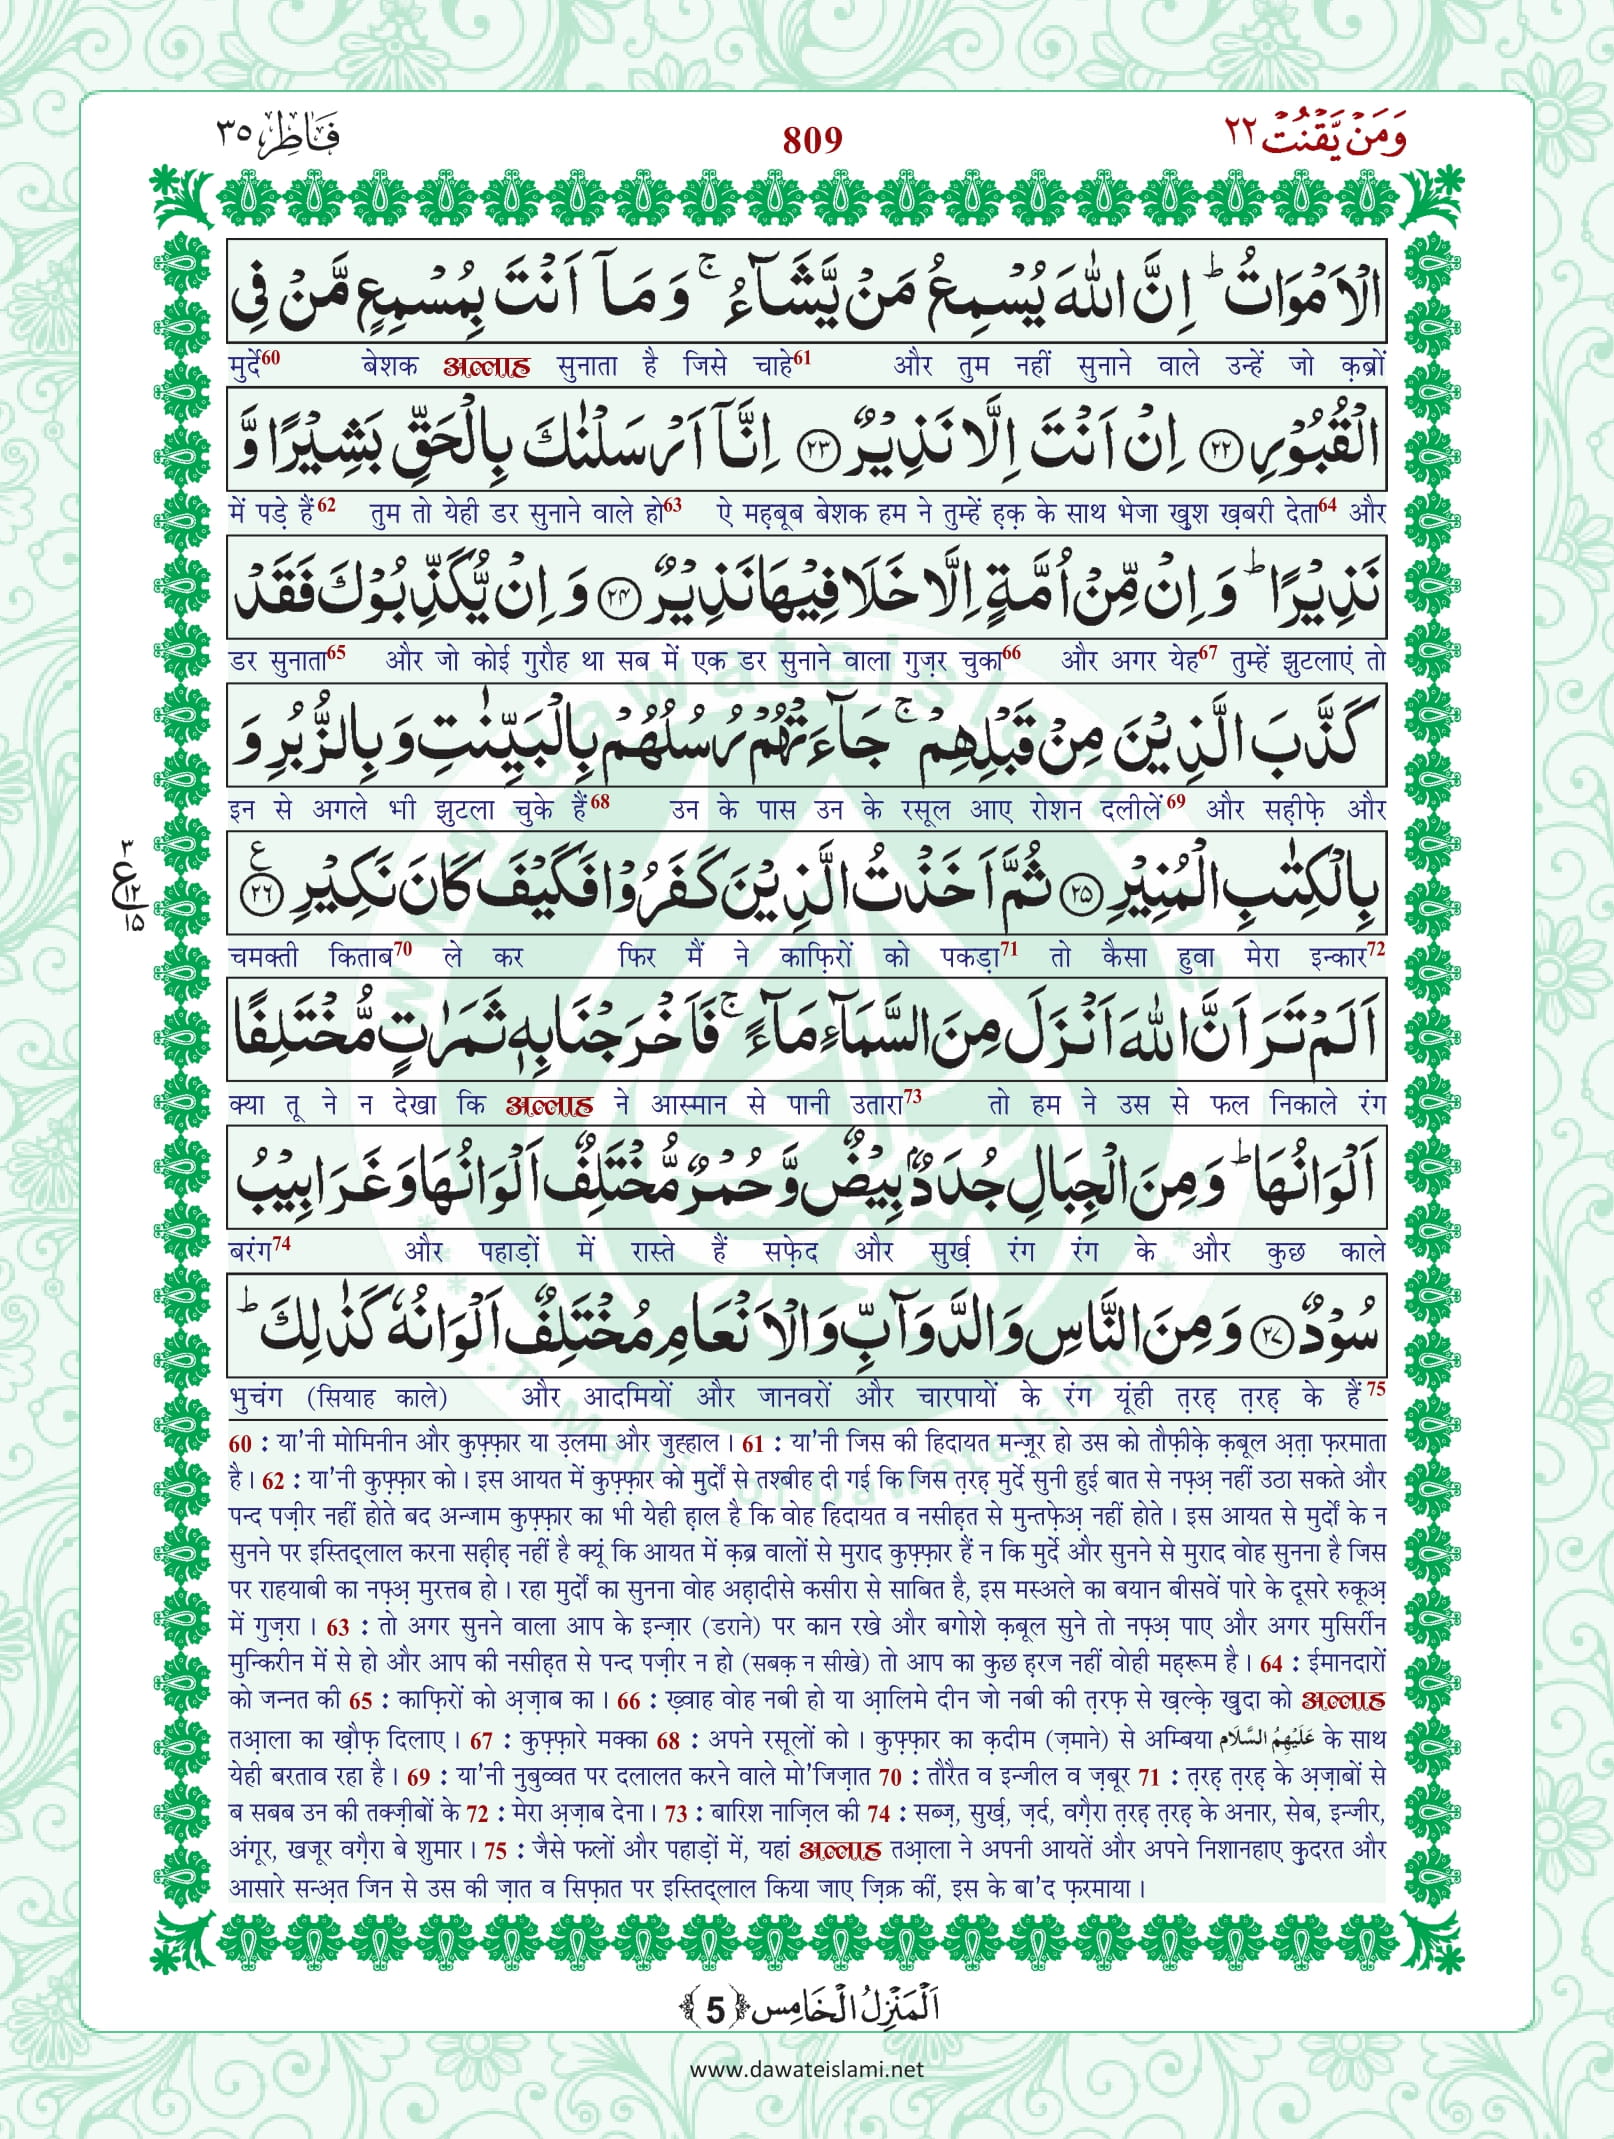 وَمَنۡ يَّقۡنُتۡ ٢٢
809
فَاطِر ٣٥
الۡاَمۡوَاتُ ؕ اِنَّ اللّٰهَ يُسۡمِعُ مَنۡ يَّشَآءُ ۚ وَمَاۤ اَنۡتَ بِمُسۡمِعٍ مَّنۡ فِى
मुर्दे60 बेशक अल्लाह सुनाता है जिसे चाहे61 और तुम नहीं सुनाने वाले उन्हें जो क़ब्रों
الۡقُبُوۡرِ ﴿٢٢﴾ اِنۡ اَنۡتَ اِلَّا نَذِيۡرٌ ﴿٢٣﴾ اِنَّاۤ اَرۡسَلۡنٰكَ بِالۡحَقِّ بَشِيۡرًا وَّ
में पड़े हैं62 तुम तो येही डर सुनाने वाले हो63 ऐ महबूब बेशक हम ने तुम्हें ह़क़ के साथ भेजा खुश ख़बरी देता64 और
نَذِيۡرًا ؕ وَاِنۡ مِّنۡ اُمَّةٍ اِلَّا خَلَا فِيۡهَا نَذِيۡرٌ ﴿٢٤﴾ وَاِنۡ يُّكَذِّبُوۡكَ فَقَدۡ
डर सुनाता65 और जो कोई गुरौह था सब में एक डर सुनाने वाला गुज़र चुका66 और अगर येह67 तुम्हें झुटलाएं तो
كَذَّبَ الَّذِيۡنَ مِنۡ قَبۡلِهِمۡ ۚ جَآءَتۡهُمۡ رُسُلُهُمۡ بِالۡبَيِّنٰتِ وَبِالزُّبُرِ وَ
इन से अगले भी झुटला चुके हैं68 उन के पास उन के रसूल आए रोशन दलीलें69 और सह़ीफ़े और
بِالۡكِتٰبِ الۡمُنِيۡرِ ﴿٢٥﴾ ثُمَّ اَخَذۡتُ الَّذِيۡنَ كَفَرُوۡا فَكَيۡفَ كَانَ نَكِيۡرِ ﴿٢٦﴾ ع
٣
ع
١٢
١٥
चमक्ती किताब70 ले कर फिर मैं ने काफ़िरों को पकड़ा71 तो कैसा हुवा मेरा इन्कार72
اَلَمۡ تَرَ اَنَّ اللّٰهَ اَنۡزَلَ مِنَ السَّمَآءِ مَآءً ۚ فَاَخۡرَجۡنَا بِهٖ ثَمَرٰتٍ مُّخۡتَلِفًا
क्या तू ने न देखा कि अल्लाह ने आस्मान से पानी उतारा73 तो हम ने उस से फल निकाले रंग
اَلۡوَانُهَا ؕ وَمِنَ الۡجِبَالِ جُدَدٌۢ بِيۡضٌ وَّحُمۡرٌ مُّخۡتَلِفٌ اَلۡوَانُهَا وَغَرَابِيۡبُ
बरंग74 और पहाड़ों में रास्ते हैं सफ़ेद और सुर्ख़ रंग रंग के और कुछ काले
سُوۡدٌ ﴿٢٧﴾ وَمِنَ النَّاسِ وَالدَّوَآبِّ وَالۡاَنۡعَامِ مُخۡتَلِفٌ اَلۡوَانُهٗ كَذٰلِكَ ؕ
भुचंग (सियाह काले) और आदमियों और जानवरों और चारपायों के रंग यूंही त़रह़ त़रह़ के हैं75
60 : या'नी मोमिनीन और कुफ़्फ़ार या उ़लमा और जुह्हाल। 61 : या'नी जिस की हिदायत मन्ज़ूर हो उस को तौफ़ीक़े क़बूल अ़त़ा फ़रमाता
है। 62 : या'नी कुफ़्फ़ार को। इस आयत में कुफ़्फ़ार को मुर्दों से तश्बीह दी गई कि जिस त़रह़ मुर्दे सुनी हुई बात से नफ़्अ़ नहीं उठा सकते और
पन्द पज़ीर नहीं होते बद अन्जाम कुफ़्फ़ार का भी येही ह़ाल है कि वोह हिदायत व नसीह़त से मुन्तफ़ेअ़ नहीं होते। इस आयत से मुर्दों के न
सुनने पर इस्तिद्लाल करना सह़ीह़ नहीं है क्यूं कि आयत में क़ब्र वालों से मुराद कुफ़्फ़ार हैं न कि मुर्दे और सुनने से मुराद वोह सुनना है जिस
पर राहयाबी का नफ़्अ़ मुरत्तब हो। रहा मुर्दों का सुनना वोह अह़ादीसे कसीरा से साबित है, इस मस्अले का बयान बीसवें पारे के दूसरे रुकूअ़
में गुज़रा। 63 : तो अगर सुनने वाला आप के इन्ज़ार (डराने) पर कान रखे और बगोशे क़बूल सुने तो नफ़्अ़ पाए और अगर मुसिर्रीन
मुन्किरीन में से हो और आप की नसीह़त से पन्द पज़ीर न हो (सबक़ न सीखे) तो आप का कुछ ह़रज नहीं वोही महरूम है। 64 : ईमानदारों
को जन्नत की 65 : काफ़िरों को अ़ज़ाब का। 66 : ख़्वाह वोह नबी हो या आ़लिमे दीन जो नबी की त़रफ़ से ख़ल्क़े ख़ुदा को अल्लाह
तआ़ला का ख़ौफ़ दिलाए। 67 : कुफ़्फ़ारे मक्का 68 : अपने रसूलों को। कुफ़्फ़ार का क़दीम (ज़माने) से अम्बिया عَلَيۡهِمُ السَّلَام के साथ
येही बरताव रहा है। 69 : या'नी नुबुव्वत पर दलालत करने वाले मो'जिज़ात 70 : तौरैत व इन्जील व ज़बूर 71 : त़रह़ त़रह़ के अ़ज़ाबों से
ब सबब उन की तक्ज़ीबों के 72 : मेरा अ़ज़ाब देना। 73 : बारिश नाज़िल की 74 : सब्ज़, सुर्ख़, ज़र्द, वग़ैरा त़रह़ त़रह़ के अनार, सेब, इन्जीर,
अंगूर, खजूर वग़ैरा बे शुमार। 75 : जैसे फलों और पहाड़ों में, यहां अल्लाह तआ़ला ने अपनी आयतें और अपने निशानहाए क़ुदरत और
आसारे सन्अ़त जिन से उस की ज़ात व सिफ़ात पर इस्तिद्लाल किया जाए ज़िक्र कीं, इस के बा'द फ़रमाया।
اَلۡمَنۡزِلُ الۡخَامِس ﴿5﴾
www.dawateislami.net